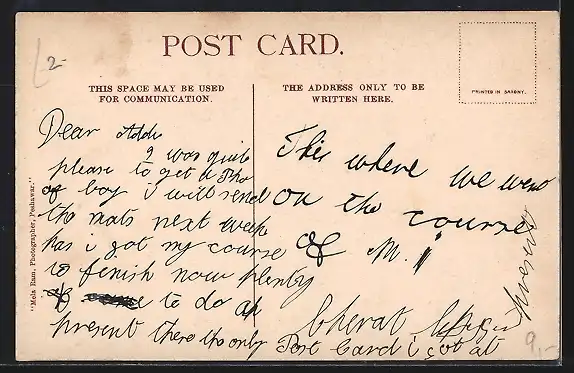 2-
POST CARD.
THIS SPACE MAY BE USED
FOR COMMUNICATION.
THE ADDRESS ONLY TO BE
WRITTEN HERE.
PRINTED IN SAXONY.
"Mela Ram, Photographer, Peshawar."
Dear Addie
I was quite
please to get a Pho
of boy i will send
the mats next week
has i got my course
to finish now plenty
of to do at
present there the only
Post Card i got at
present
This where we went
on the course
of M. i
Cherat
9,-